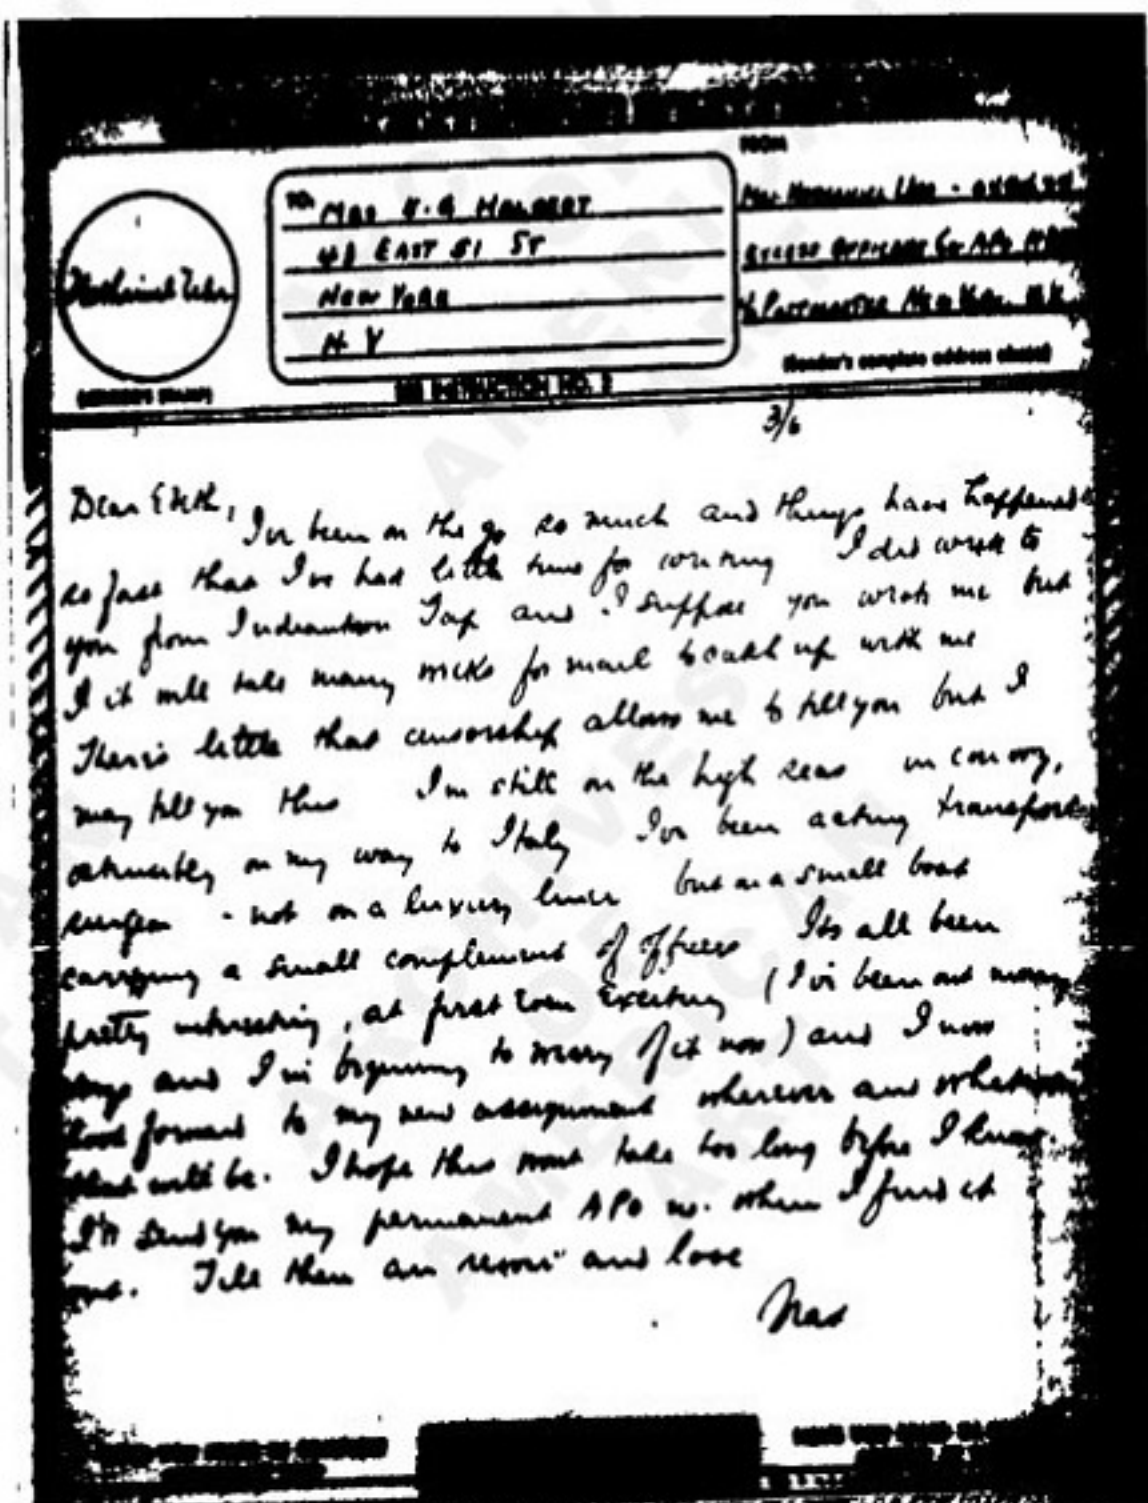 TO:
MRS H.G HALPERT
43 EAST 51 ST
NEW YORK
N Y
FROM
(Sender's complete address above)
SEE INSTRUCTION NO. 2
(CENSOR'S STAMP)
3/6
Dear Edith,
I've been on the go so much and things have happened
so fast that I've had little time for writing I did write to
you from Indiantown Gap and I suppose you wrote me but
I it will take many weeks for mail to catch up with me
There's little that censorship allows me to tell you but I
may tell you this I'm still on the high seas in convoy,
on my way to Italy I've been acting transport
surgeon - not on a luxury liner but on a small boat
carrying a small complement of officers Its all been
pretty interesting, at first even exciting (I've been out many
days and I'm beginning to weary of it now) and I now
look forward to my new assignment wherever and whatever
that will be. I hope this wont take too long before I know.
I'll send you my permanent APO no. when I find it
out. Till then au revoir and love
Nat